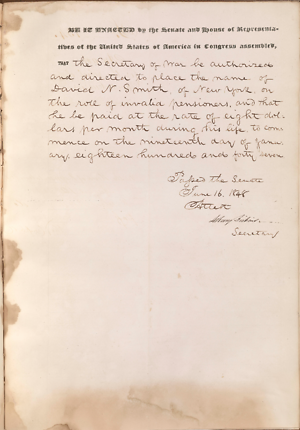 BE IT ENACTED by the Senate and House of Representa-
tives of the United States of America in Congress assembled,
THAT the Secretary of War be authorized
and directed to place the name of
David N. Smith of New York on
the roll of invalid pensioners, and that
he be paid at the rate of eight dol-
lars per month during his life to com
mence on the nineteenth day of Janu
ary, eighteen hundred and forty seven
Passed the Senate
June 16. 1848
Attest
Secretary